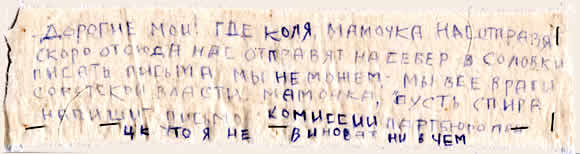 ДОРОГИЕ МОИ! ГДЕ КОЛЯ, МАМОЧКА НАС ОТПРАВЯ
СКОРО ОТСЮДА НАС ОТПРАВЯТ НА СЕВЕР В СОЛОВКИ
ПИСАТЬ ПИСЬМА МЫ НЕ МОЖЕМ. МЫ ВСЕ ВРАГИ
СОВЕТСКОЙ ВЛАСТИ. МАМОЧКА, ПУСТЬ СПИРА
НАПИШИТ ПИСЬМО КОМИССИИ
ЦК ЧТО Я НЕ ВИНОВАТ НИ В ЧЕМ